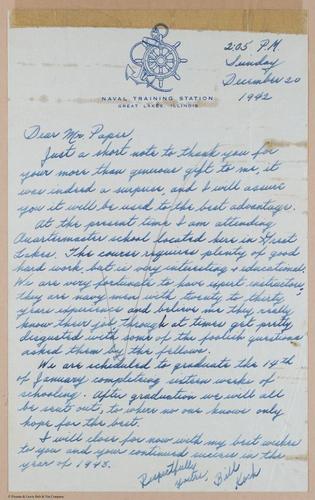 2:05 P.M.
Sunday
December 20
1942
NAVAL TRAINING STATION
GREAT LAKES, ILLINOIS
Dear Mr. Papes,
Just a short note to thank you for
your more than generous gift to me, it
was indeed a surprise, and I will assure
you it will be used to the best advantage.
At the present time I am attending
Quartermaster school located here in Great
Lakes. The course requires plenty of good
hard work but is very interesting & educational.
We are very fortunate to have expert instructors,
they are navy men with twenty to thirty
years experience and believe me they really
know their job, though at times get pretty
disgusted with some of the foolish questions
asked them by the fellows.
We are scheduled to graduate the 14th
of January completing sixteen weeks of
schooling. After graduation we will all
be sent out, to where no one knows only
hope for the best.
I will close for now with my best wishes
to you and your continued success in the
year of 1943.
Respectfully
yours, Bill
Koch